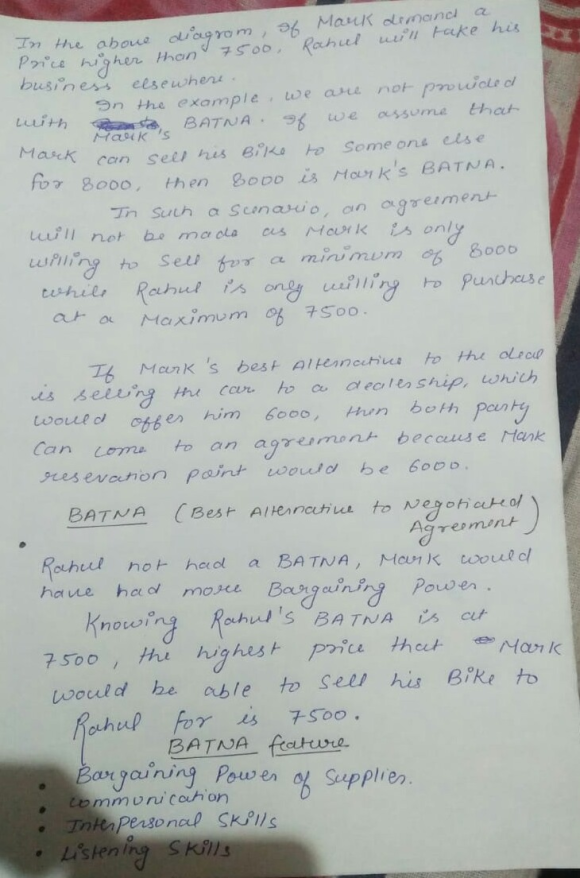 In the above diagram, If Mark demand a
Price higher than 7500, Rahul will take his
business elsewhere.
In the example, we are not provided
with Mark's BATNA. If we assume that
Mark can sell his Bike to Someone else
for 8000, then 8000 is Mark's BATNA.
In Such a Scenario, an agreement
will not be made as Mark is only
willing to Sell for a minimum of 8000
while Rahul is only willing to purchase
at a Maximum of 7500.
If Mark's best Alternative to the deal
is selling the car to a dealership, which
would offer him 6000, then both party
Can come to an agreement because Mark
resevation point would be 6000.
BATNA (Best Alternative to Negotiated
Agreement)
Rahul not had a BATNA, Mark would
have had more Bargaining Power.
Knowing Rahul's BATNA is at
7500, the highest price that Mark
would be able to Sell his Bike to
Rahul for is 7500.
BATNA feature
• Bargaining Power of Supplier.
• Communication
• Interpersonal Skills
• Listening Skills